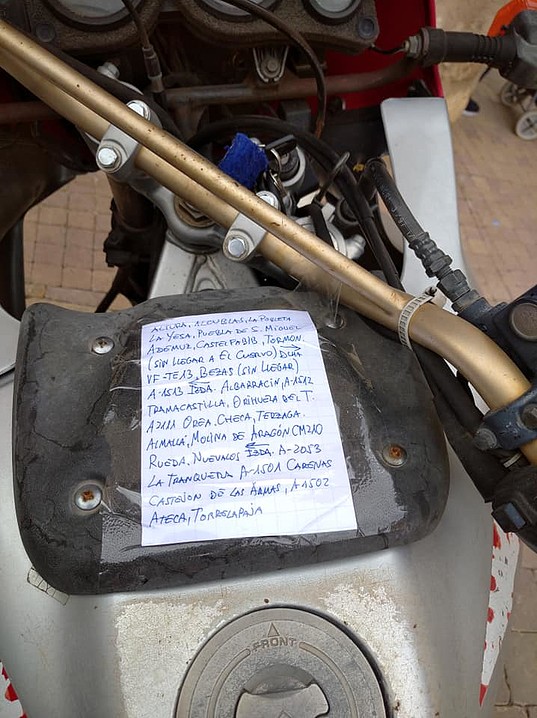 ALCUBLAS, LA POBLETA
LA YESA, PUEBLA DE S. MIGUEL
ADEMUZ, CASTELFABIB, TORMON.
(SIN LLEGAR A EL CUERVO) DCHA
VF-TE13, BEZAS (SIN LLEGAR)
A-1513 IZDA. ALBARRACIN, A-1512
TRAMACASTILLA, ORIHUELA DEL T.
A2111 OREA, CHECA, TERZAGA.
ALMALLÁ, MOLINA DE ARAGÓN CM210
RUEDA. NUEVALOS IZDA. A-2053
LA TRANQUERA A-1501 CARENAS
CASTEJON DE LAS ARMAS, A1502
ATECA, TORRELAPAJA
FRONT